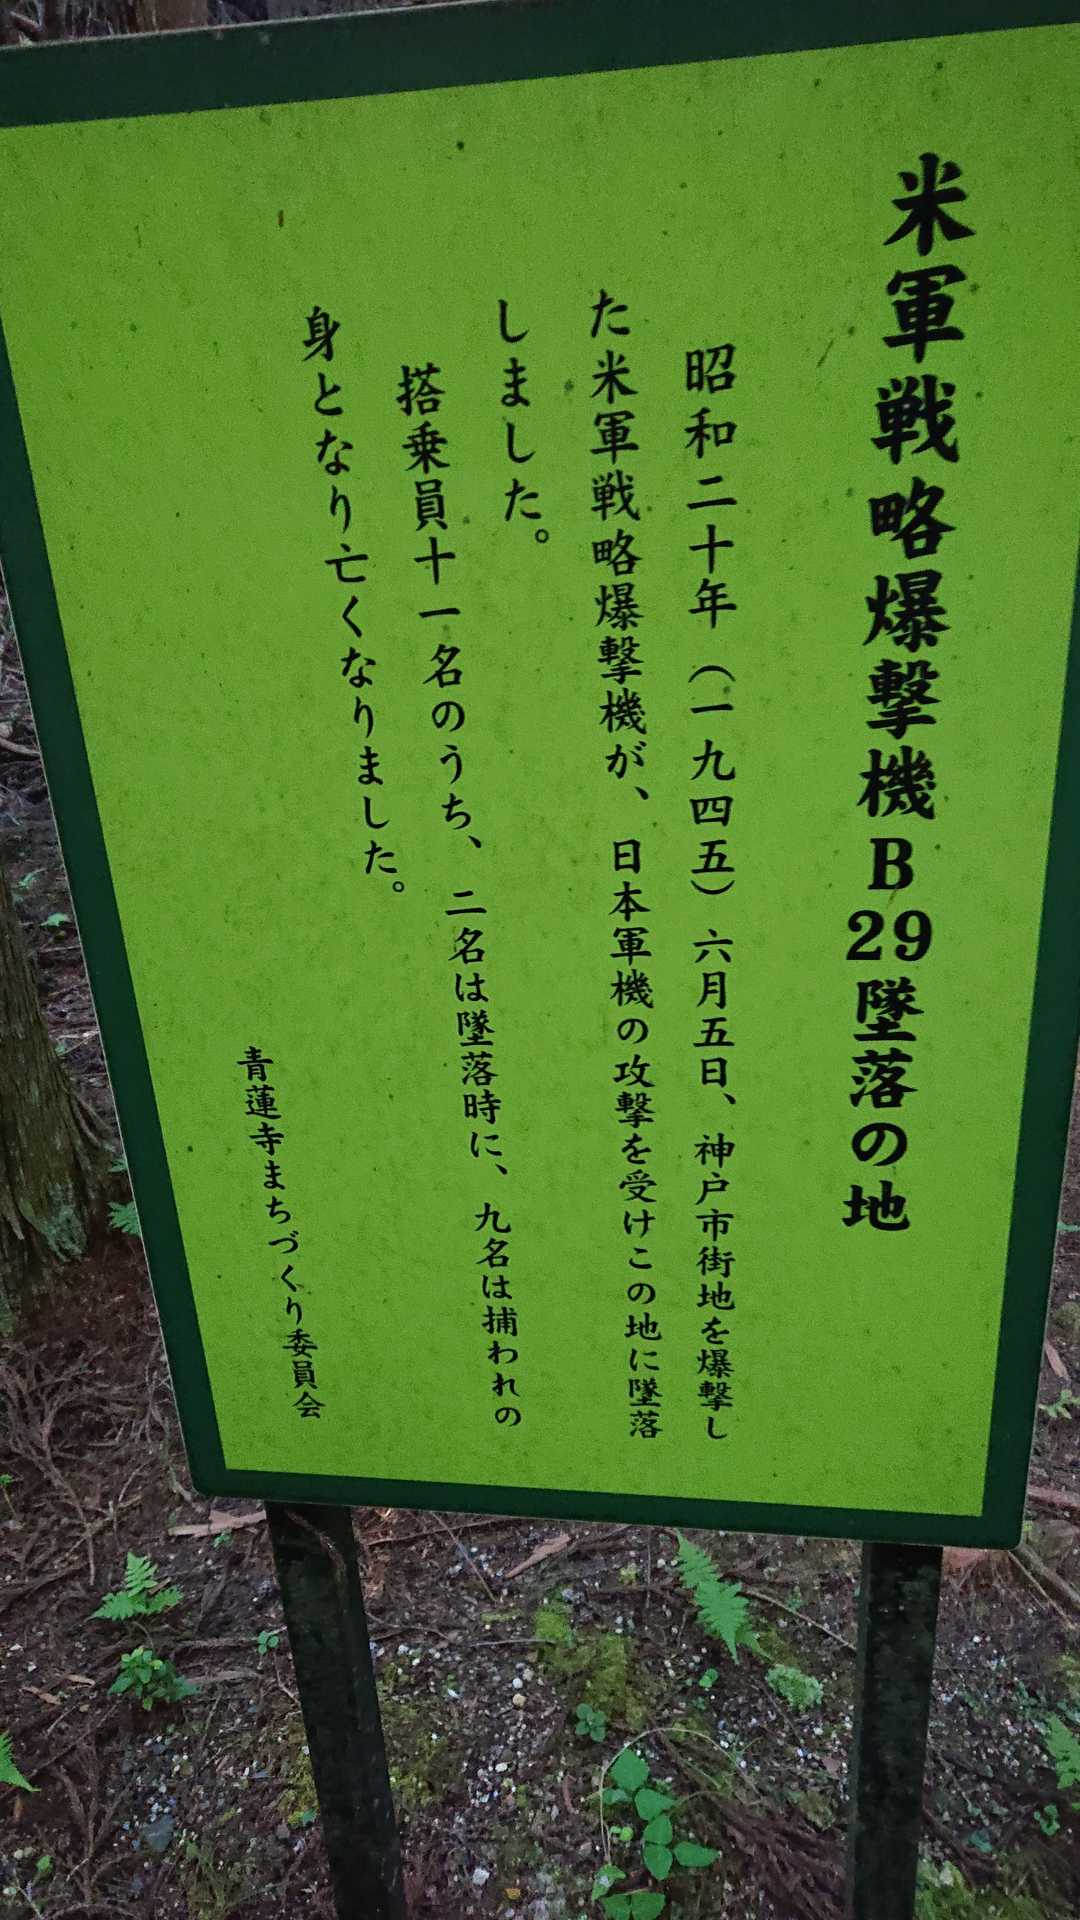 米軍戦略爆撃機B29墜落の地
昭和二十年（一九四五）六月五日、神戸市街地を爆撃し
た米軍戦略爆撃機が、日本軍機の攻撃を受けこの地に墜落
しました。
搭乗員十一名のうち、二名は墜落時に、九名は捕われの
身となり亡くなりました。
青蓮寺まちづくり委員会